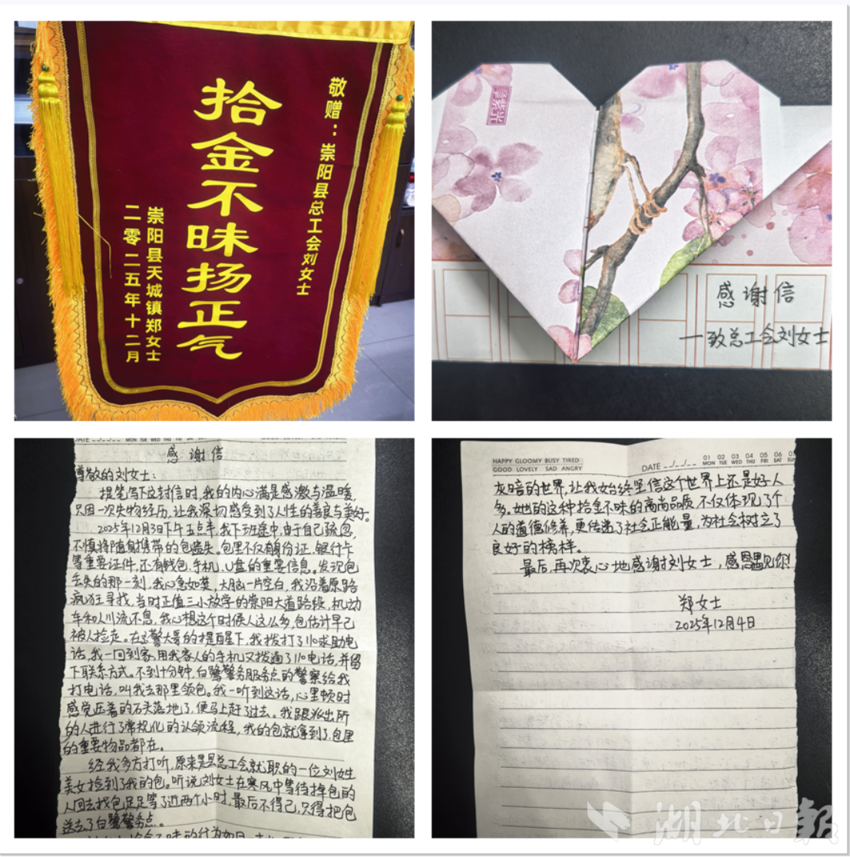 敬赠：崇阳县总工会刘女士
拾金不昧扬正气
崇阳县天城镇郑女士
二零二五年十二月
感谢信
一致总工会刘女士
感谢信
尊敬的刘女士：
提笔写下这封信时，我的内心满是感激与温暖，
只因一次失物经历，让我深切感受到了人性的善良与美好。
2025年12月3日下午五点半，我下班途中，由于自己疏忽，
不慎将随身携带的包遗失。包里不仅有身份证、银行卡
等重要证件，还有钱包、手机、U盘的重要信息。发现包
丢失的那一刻，我心急如焚，大脑一片空白，我沿着原路
疯狂寻找，当时正值三小放学的崇阳大道路段，机动
车和人川流不息，我心想这个时候人这么多，包估计早已
被人捡走。在交警大哥的提醒下，我拨打了110求助电
话，我一回到家，用我家人的手机又拨通了110电话，并留
下联系方式。不到十分钟，白鹭警务服务点的警察给我
打电话，叫我去那里领包。我一听到这话，心里顿时
感觉压着的石头落地了，便马上赶了过去。我跟派出所
的人进行了常规化的认领流程，我的包就拿到了，包里
的重要物品都在。
经我多方打听，原来是县总工会就职的一位刘女生
美女捡到了我的包。听说刘女士在寒风中等待掉包的
人回去找包足足等了近两个小时，最后不得已，只得把包
送去了白鹭警务点。
HAPPY GLOOMY BUSY TIRED
GOOD LOVELY SAD ANGRY
DATE __/__/__
01 02 03 04 05 06
MON TUE WED THU FRI SAT
灰暗的世界，让我始终坚信这个世界上还是好人
多。她的这种拾金不昧的高尚品质，不仅体现了个
人的道德修养，更传递了社会正能量，为社会树立了
良好的榜样。
最后，再次衷心地感谢刘女士，感恩遇见你！
郑女士
2025年12月4日
湖北日报